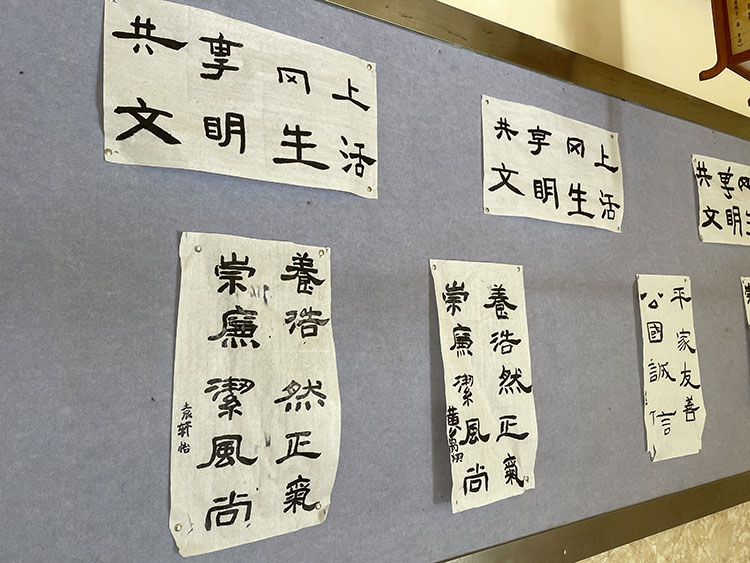 共享网上
文明生活
共享网上
文明生活
共享网
文明生
養浩然正氣
崇廉潔風尚
袁轩怡
養浩然正氣
崇廉潔風尚
黄
平家友善
公國誠信